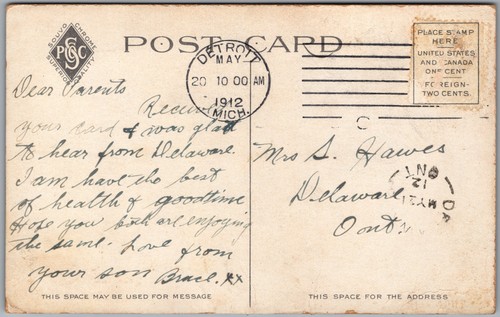 SOUVO CHROME
PCSC
SUPERIOR QUALITY
POST CARD
PLACE STAMP
HERE
UNITED STATES
AND CANADA
ONE CENT
FOREIGN-
TWO CENTS.
DETROIT
MAY
20 10 00 AM
1912
MICH.
Dear Parents
your card & was glad
to hear from Delaware.
I am have the best
of health & goodtime
Hope you both are enjoying
the same. Love from
your son Bruce. xx
Mrs S. Hawes
Delaware
Ont
MY 21
12
ONT
THIS SPACE MAY BE USED FOR MESSAGE
THIS SPACE FOR THE ADDRESS